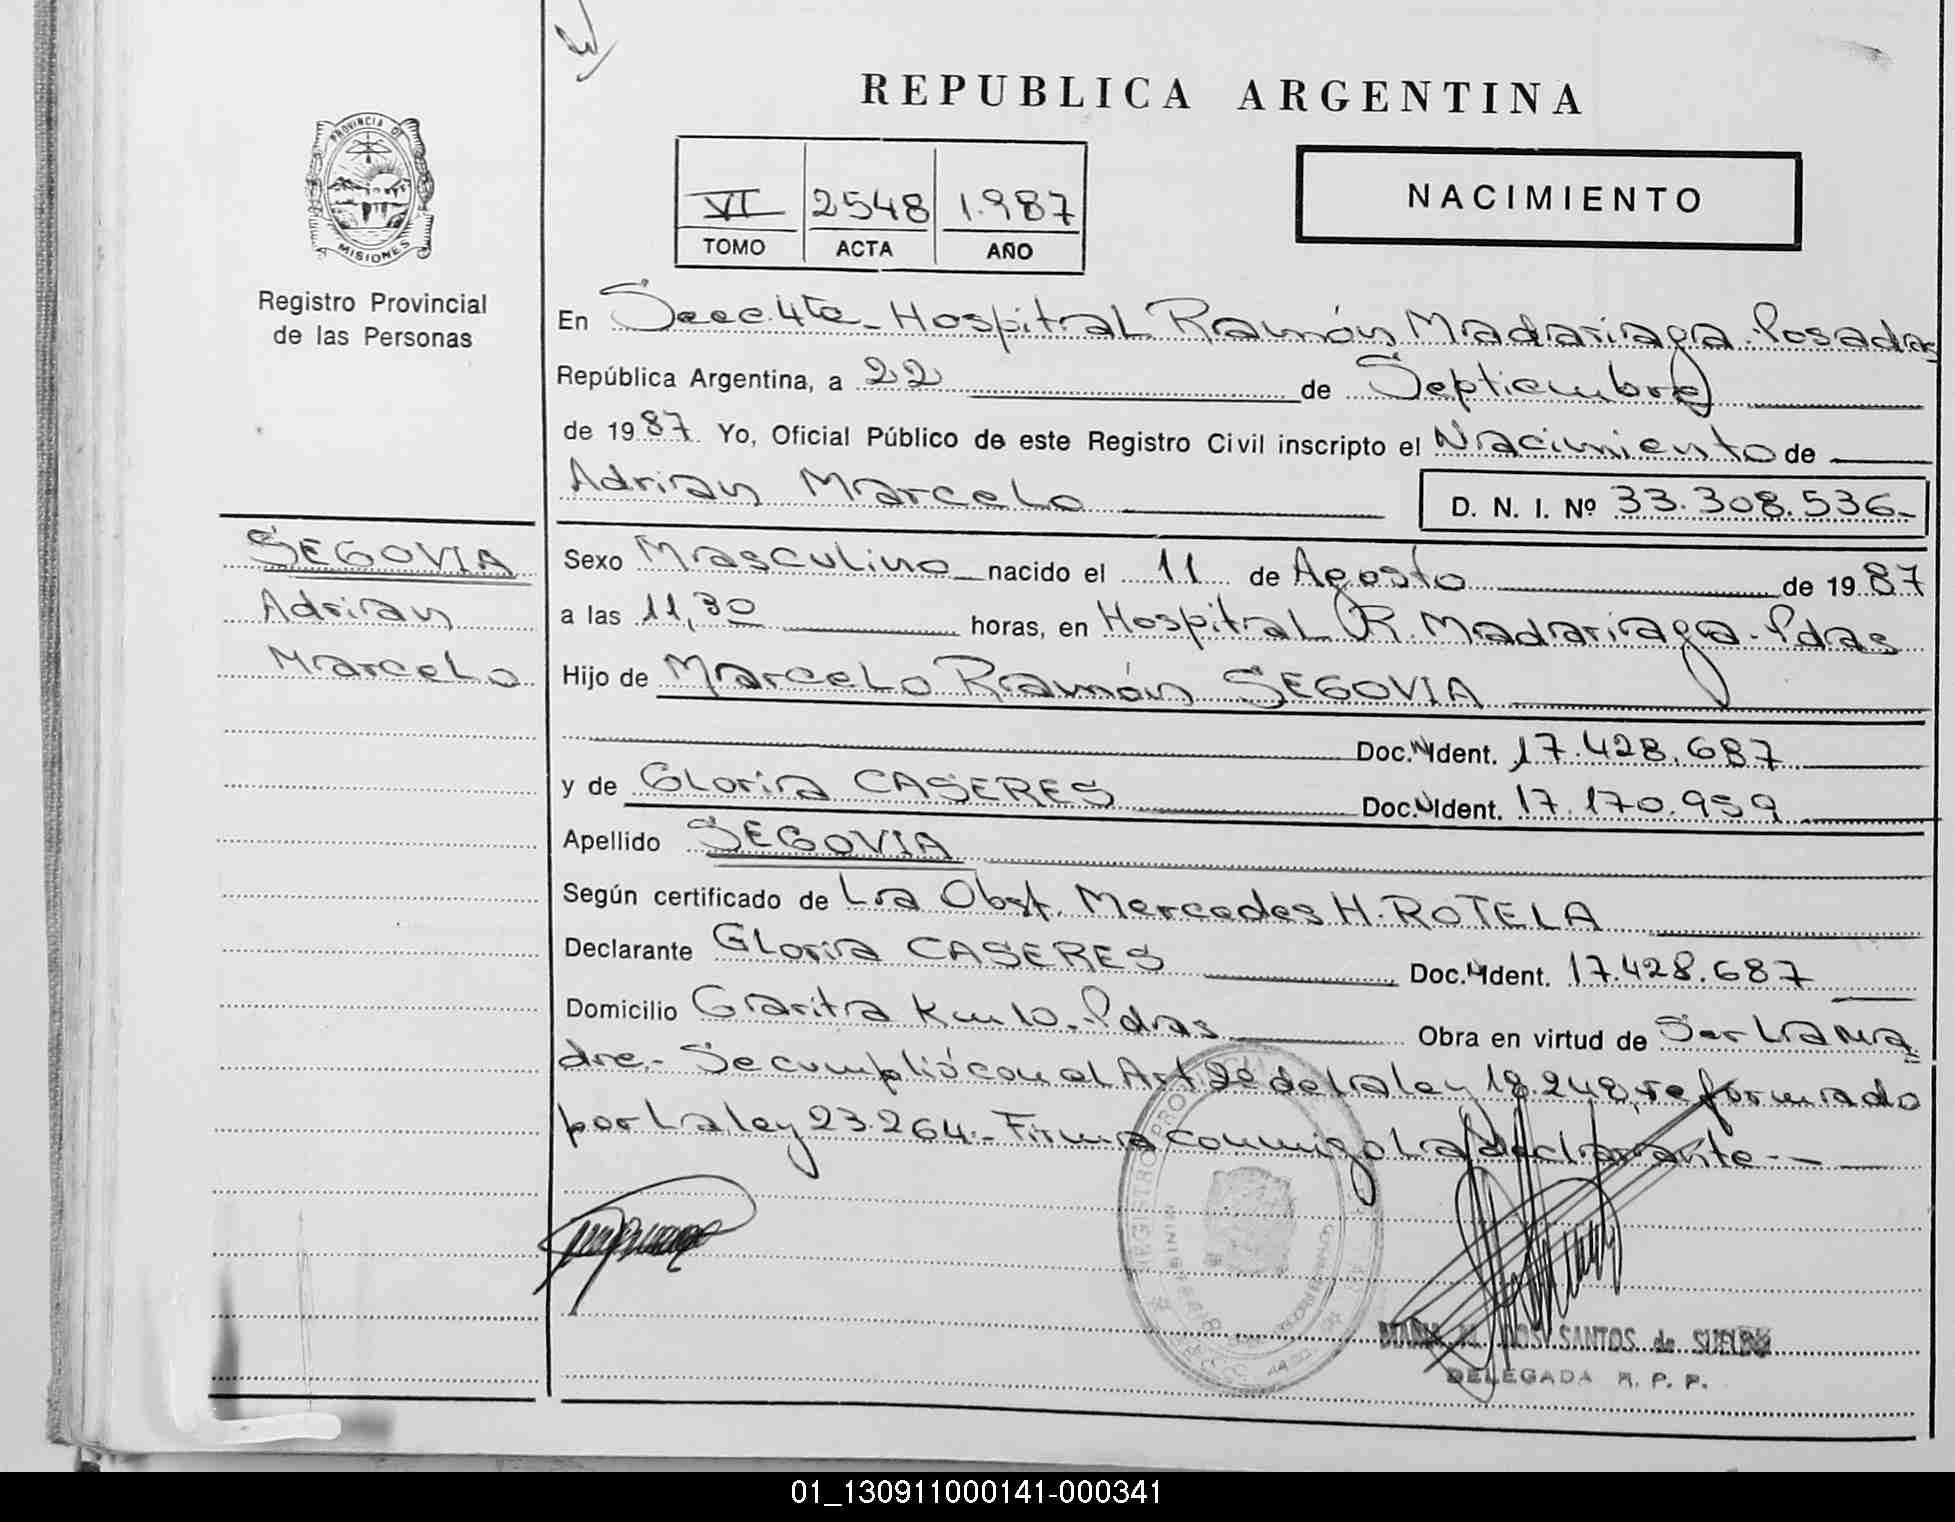 REPUBLICA ARGENTINA
PROVINCIA DE
MISIONES
Registro Provincial
de las Personas
VI 2548 1.987
TOMO ACTA AÑO
NACIMIENTO
En Secc. 4ta - Hospital Ramón Madariaga - Posadas
República Argentina, a 22 de Septiembre
de 1987. Yo, Oficial Público de este Registro Civil inscripto el Nacimiento de
Adrian Marcelo
D. N. I. Nº 33.308.536-
SEGOVIA
Adrian
Marcelo
Sexo Masculino nacido el 11 de Agosto de 1987
a las 11,30 horas, en Hospital R. Madariaga - Pdas
Hijo de Marcelo Ramón SEGOVIA
Doc. Ident. 17.428.687
y de Gloria CASERES Doc. Ident. 17.170.959
Apellido SEGOVIA
Según certificado de La Obst. Mercedes H. ROTELA
Declarante Gloria CASERES Doc. Ident. 17.428.687
Domicilio Garita Km 10 - Pdas Obra en virtud de Ser La Ma
dre.- Se cumplió con el Art 2º de la ley 18.248, reformado
por La ley 23.264.- Firma conmigo La declarante --
REGISTRO
DOS SANTOS de
DELEGADA R. P. P.
01_130911000141-000341